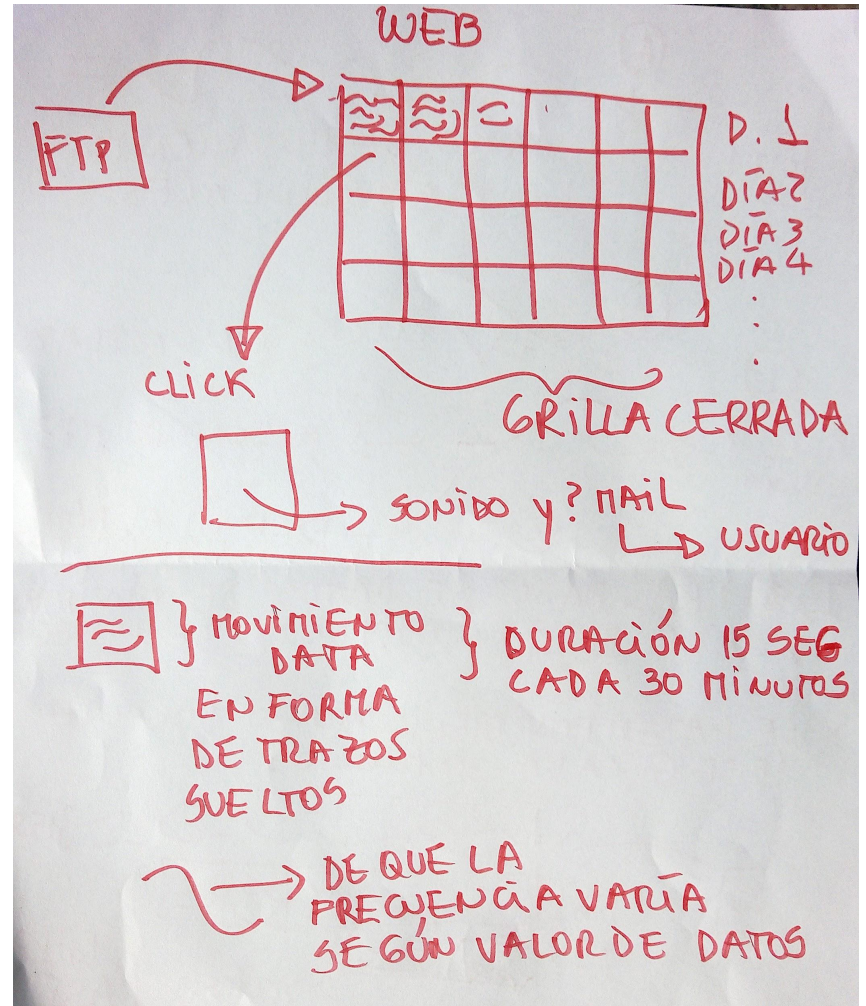 WEB
FTP
D. 1
DÍA 2
DÍA 3
DÍA 4
CLICK
GRILLA CERRADA
SONIDO Y ? MAIL
USUARIO
MOVIMIENTO
DATA
EN FORMA
DE TRAZOS
SUELTOS
DURACIÓN 15 SEG
CADA 30 MINUTOS
DE QUE LA
FRECUENCIA VARÍA
SEGÚN VALOR DE DATOS